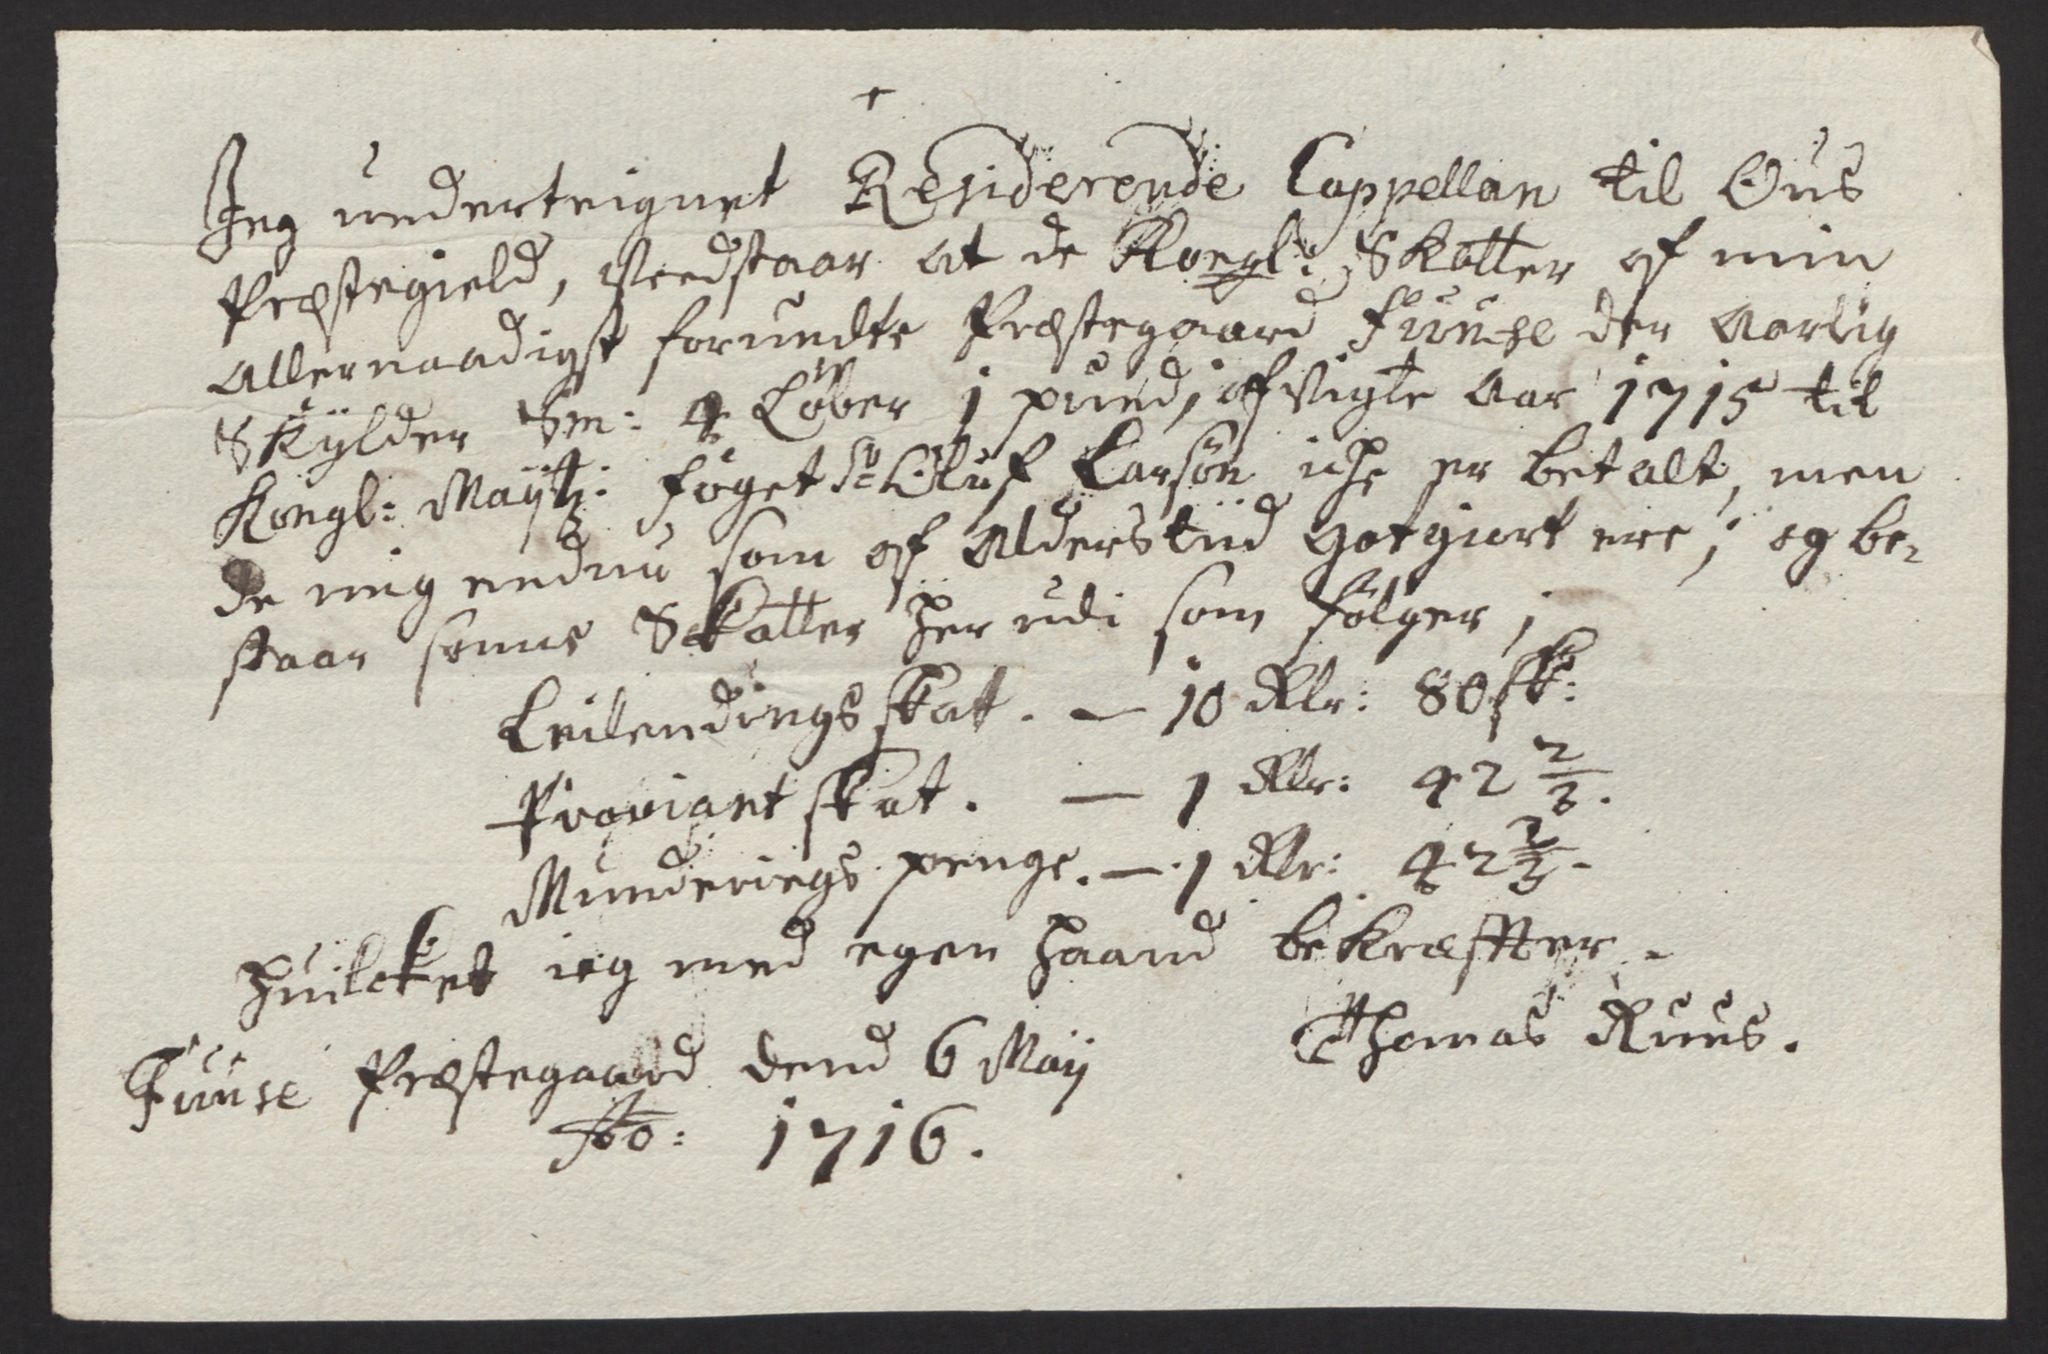 Jeg underteignet Residerende Cappellan til Ous
Præstegield, Vedstaar at de Kongl: Skatter af min
allernaadigst forundte Præstegaard Fuuse der Aarlig
Skylder Sm: 4 Løber 1 pund, afvigte Aar 1715 til
Kongl: Mayts: foget Sr Oluf Larsøn iche er betalt, men
de mig endnu som af Alderstiid godtgiort ere, og be-
staar samme Skatter her udi som følger,
Leilendings skat. — 10 Rdlr: 80 sk:
Proviant skat. — 1 Rdlr: 42 2/3.
Munderings penge. — 1 Rdlr: 42 2/3.
Huilcket ieg med egen Haand bekræffter.
Thomas Ruus.
Fuuse Præstegaard dend 6 Maij
Ao: 1716.